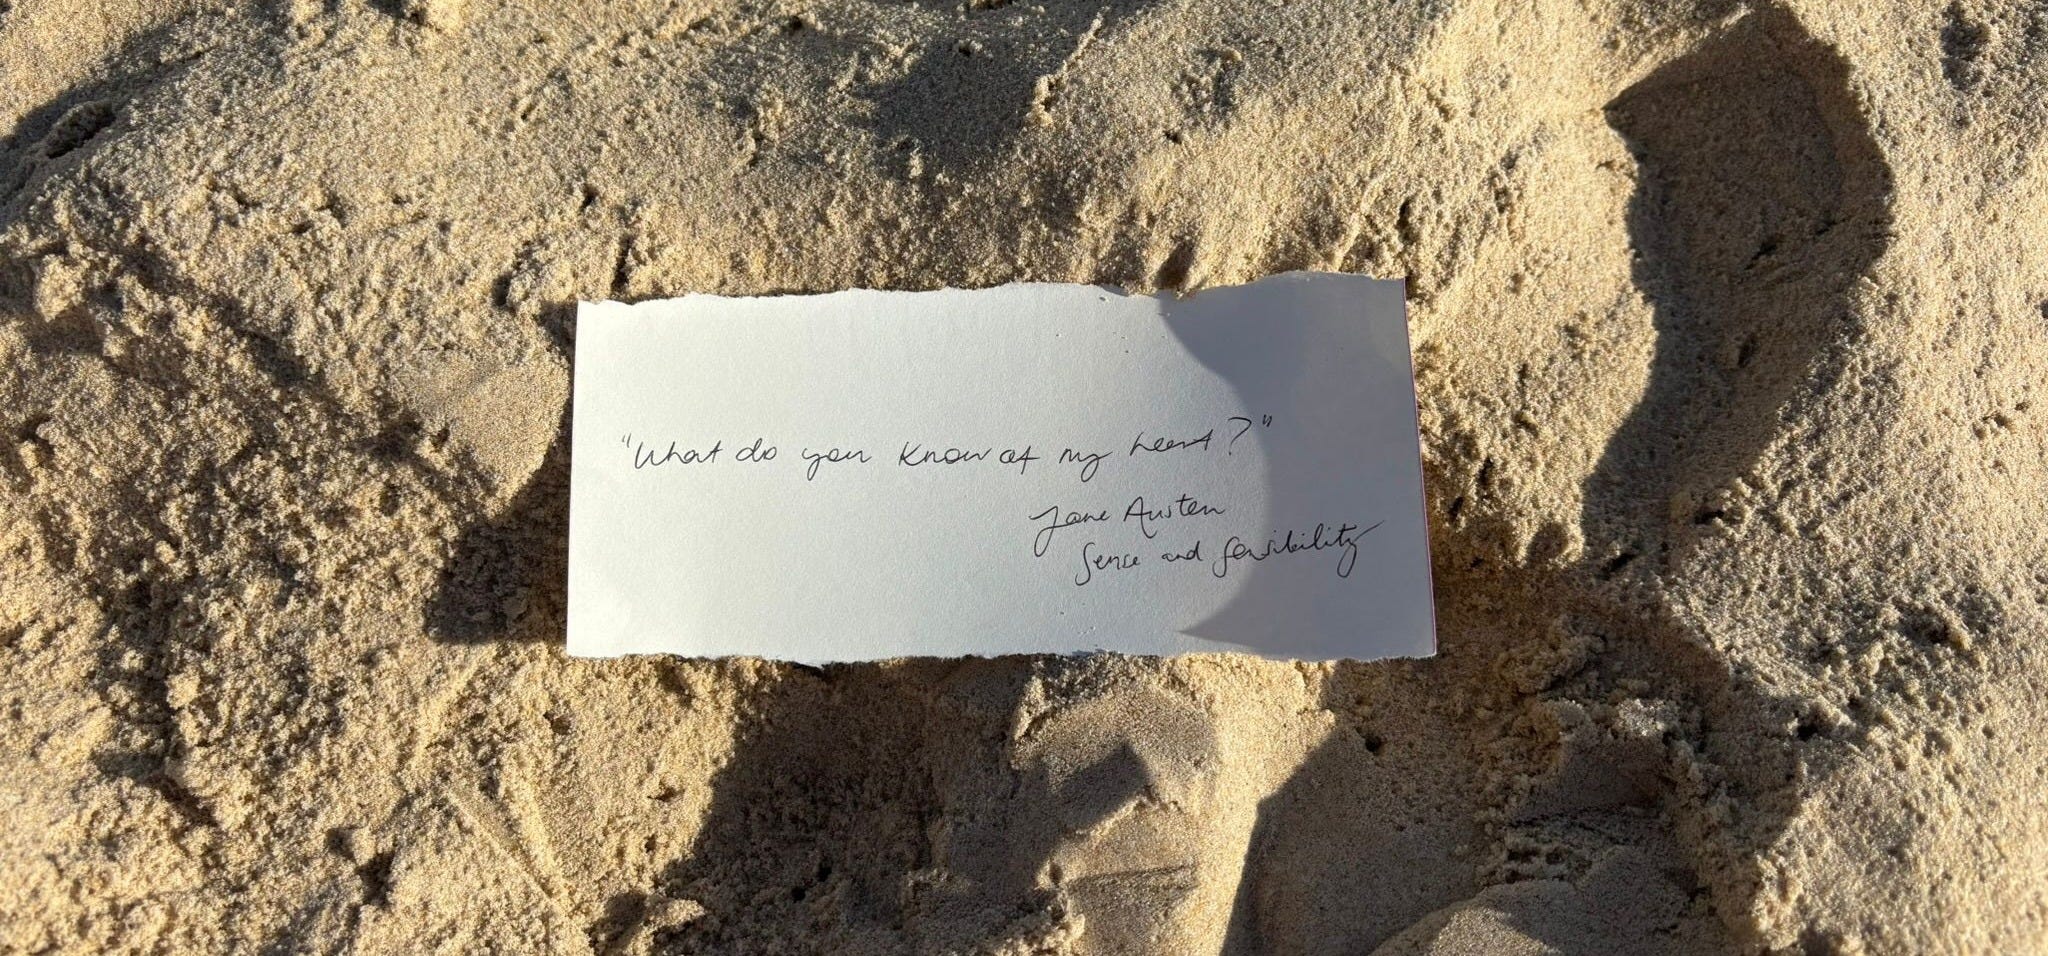 "What do you know of my heart?"
Jane Austen
Sense and Sensibility